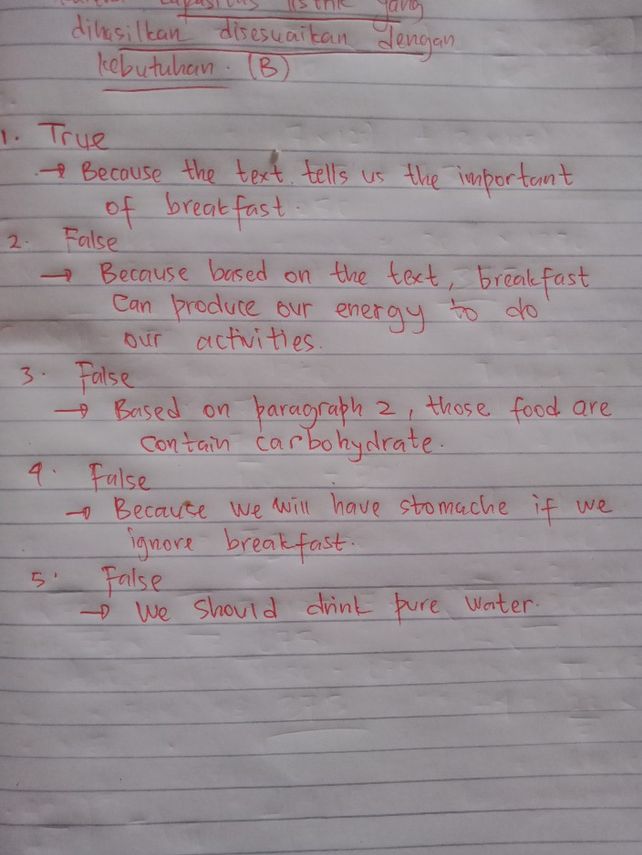 kapasitas listrik yang
dihasilkan disesuaikan dengan
kebutuhan. (B)
1. True
→ Because the text tells us the important
of breakfast.
2. False
→ Because based on the text, breakfast
can produce our energy to do
our activities.
3. False
→ Based on paragraph 2, those food are
contain carbohydrate.
4. False
→ Because we will have stomache if we
ignore breakfast.
5. False
→ We should drink pure water.